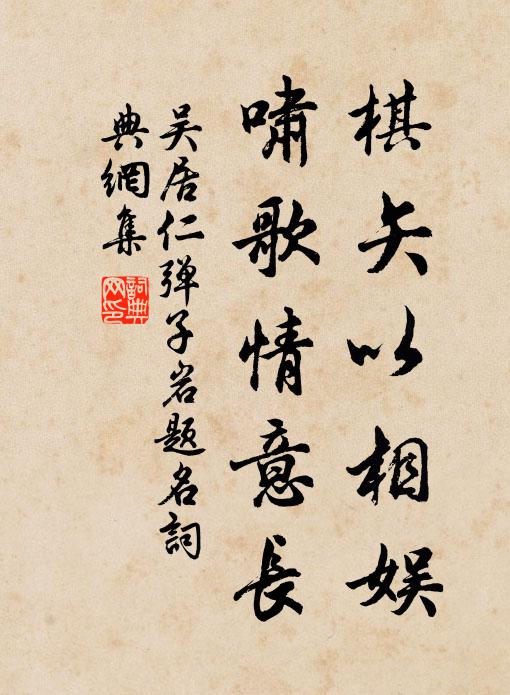 棋矢以相娱
嘯歌情意長
吴居仁弹子岩题名詞
典網集
詞典网印